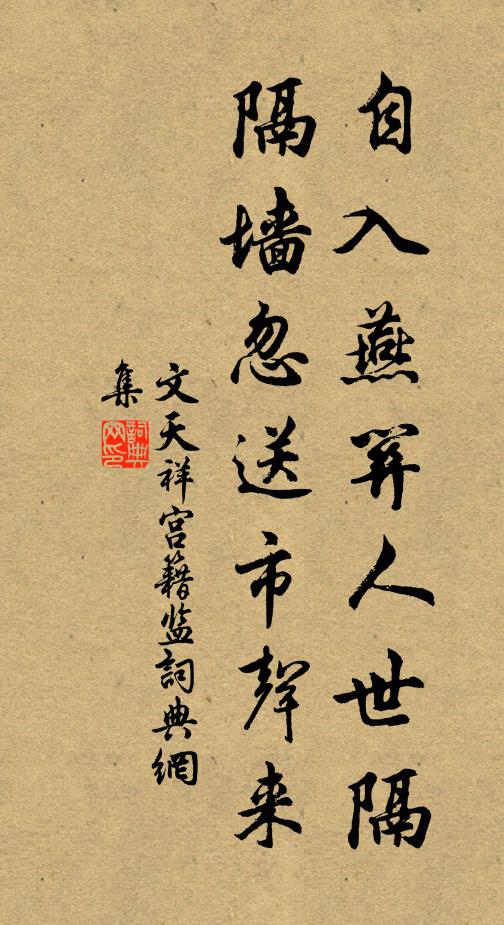 自入燕關人世隔
隔墙忽送市聲来
文天祥宫籍监詞典網
集
詞典
网印